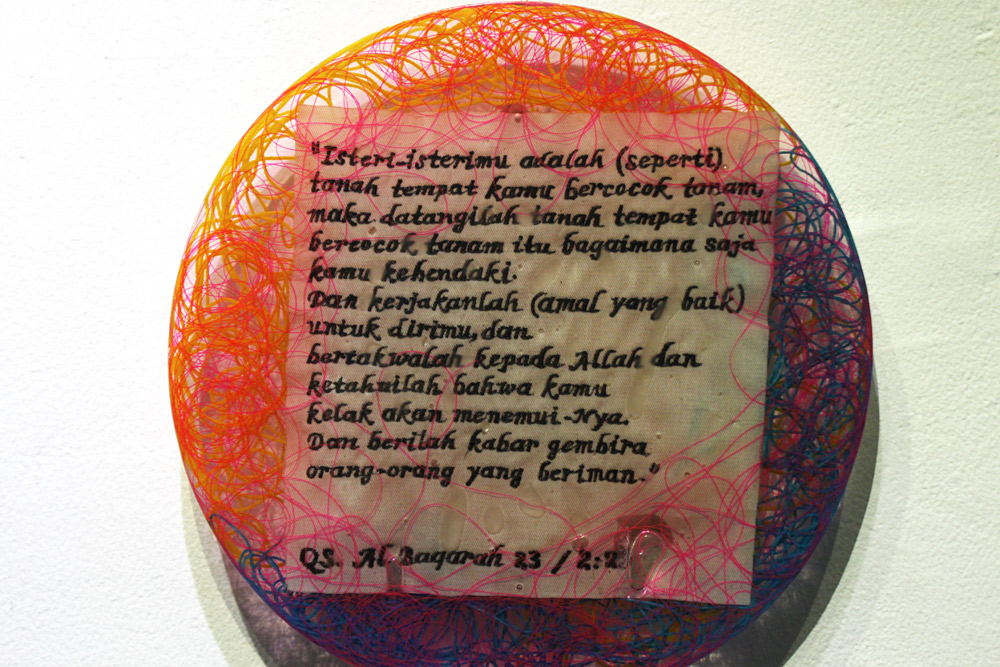 "Isteri-isterimu adalah (seperti)
tanah tempat kamu bercocok tanam,
maka datangilah tanah tempat kamu
bercocok tanam itu bagaimana saja
kamu kehendaki.
Dan kerjakanlah (amal yang baik)
untuk dirimu, dan
bertakwalah kepada Allah dan
ketahuilah bahwa kamu
kelak akan menemui-Nya.
Dan berilah kabar gembira
orang-orang yang beriman."
QS. Al Baqarah 23 /